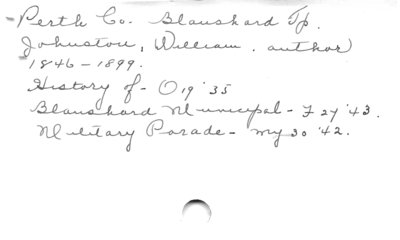 Perth Co. Blanshard Tp.
Johnston, William. author
1846-1899.
History of - O 19 '35
Blanshard Municipal - F 27 '43.
Military Parade - My 30 '42.